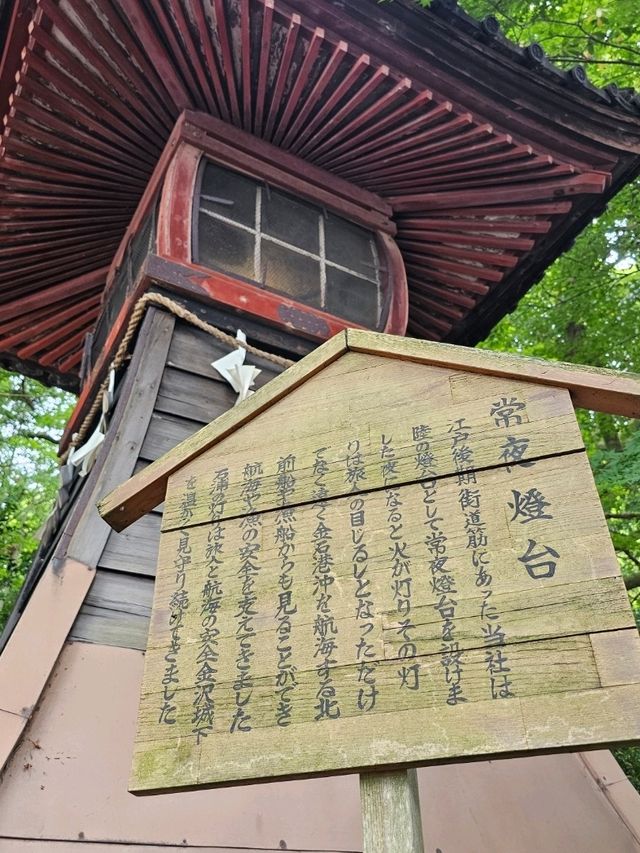 常夜燈台
江戸後期街道筋にあった当社は
陸の燈台として常夜燈台を設けま
した夜になると火が灯りその灯
りは旅人の目じるしとなっただけ
でなく遠く金石港沖を航海する北
前船や漁船からも見ることができ
航海や漁の安全を支えてきました
この灯りは旅人と航海の安全金沢城下
を真かで見守り続けてきました